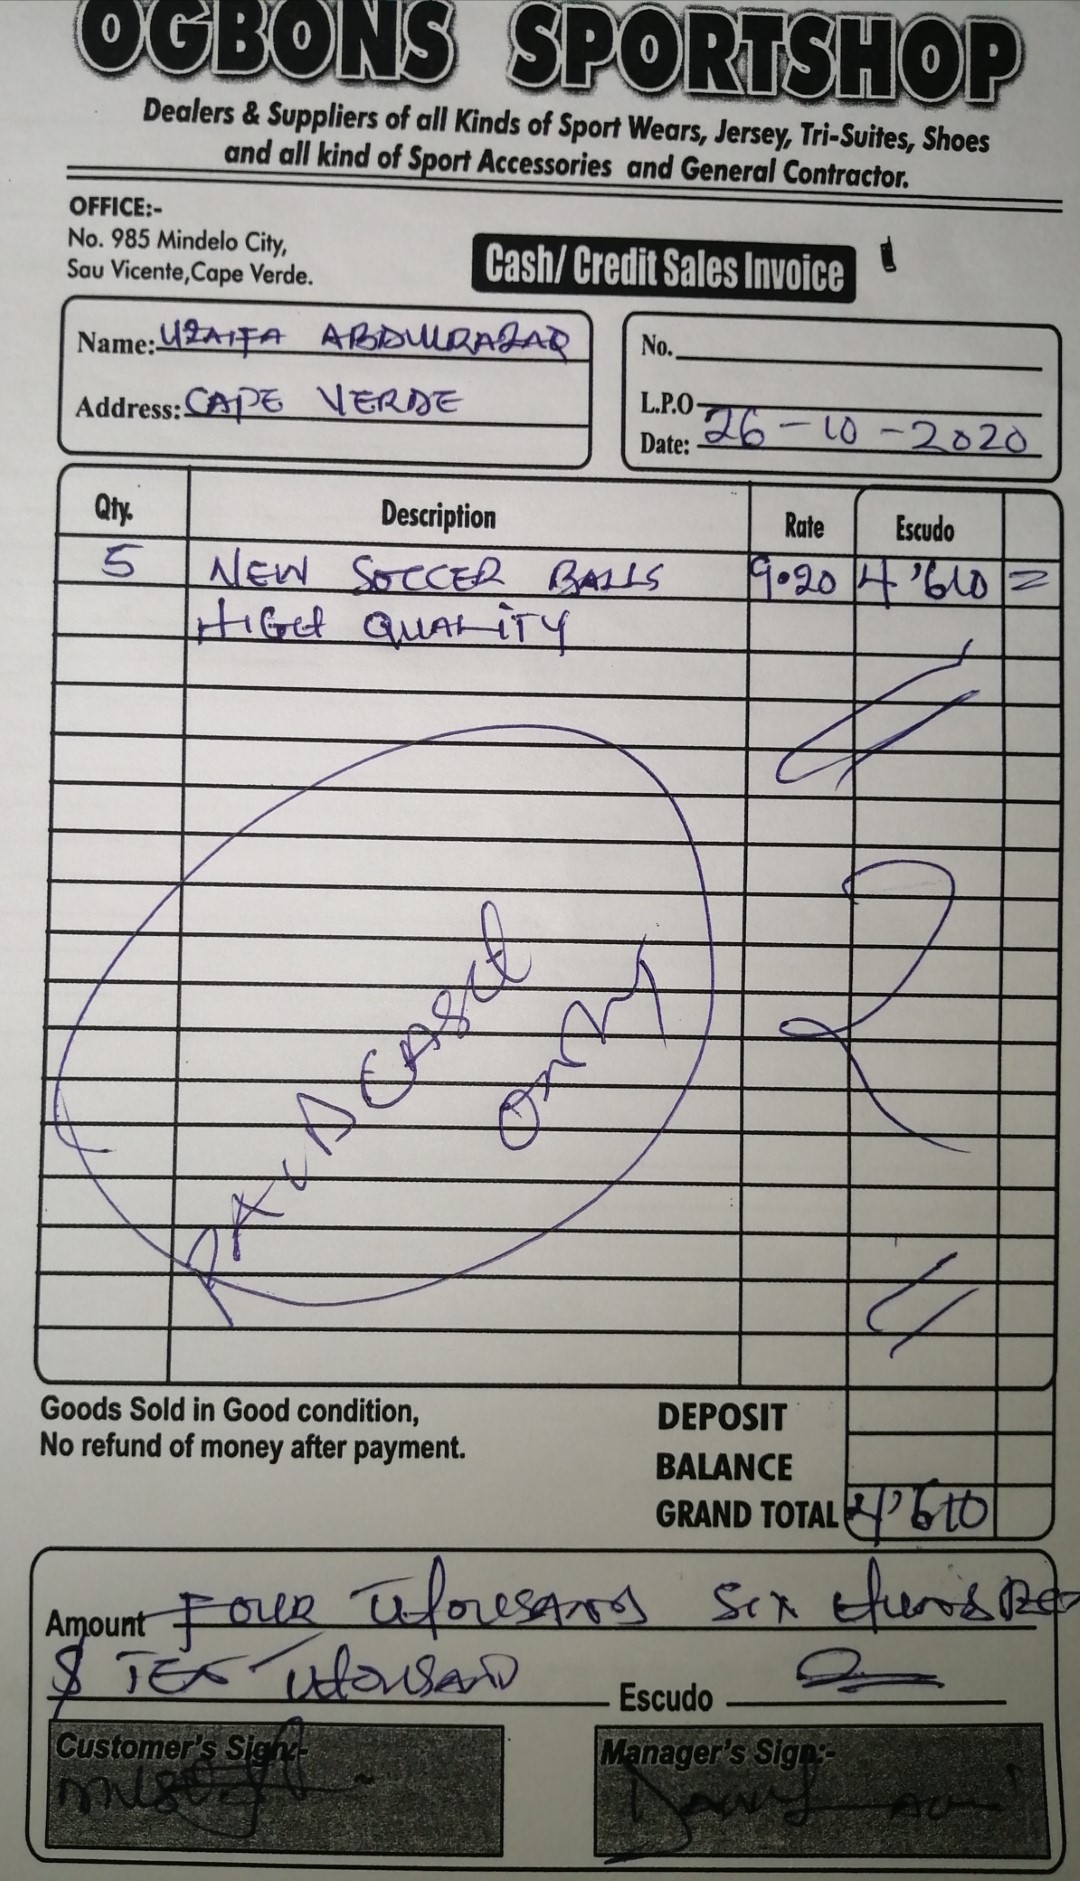 OGBONS SPORTSHOP
Dealers & Suppliers of all Kinds of Sport Wears, Jersey, Tri-Suites, Shoes
and all kind of Sport Accessories and General Contractor.
OFFICE:-
No. 985 Mindelo City,
Sau Vicente,Cape Verde.
Cash/ Credit Sales Invoice
Name: UZAIFA ABDULRAZAQ
Address: CAPE VERDE
No.
L.P.O
Date: 26-10-2020
Qty. Description Rate Escudo
5 NEW SOCCER BALLS 9.20 4'610 =
HIGH QUALITY
PAID CASH
ONLY
Goods Sold in Good condition,
No refund of money after payment.
DEPOSIT
BALANCE
GRAND TOTAL 4'610
Amount FOUR THOUSAND SIX HUNDRED
$ TEN THOUSAND Escudo
Customer's Sign:-
Manager's Sign:-